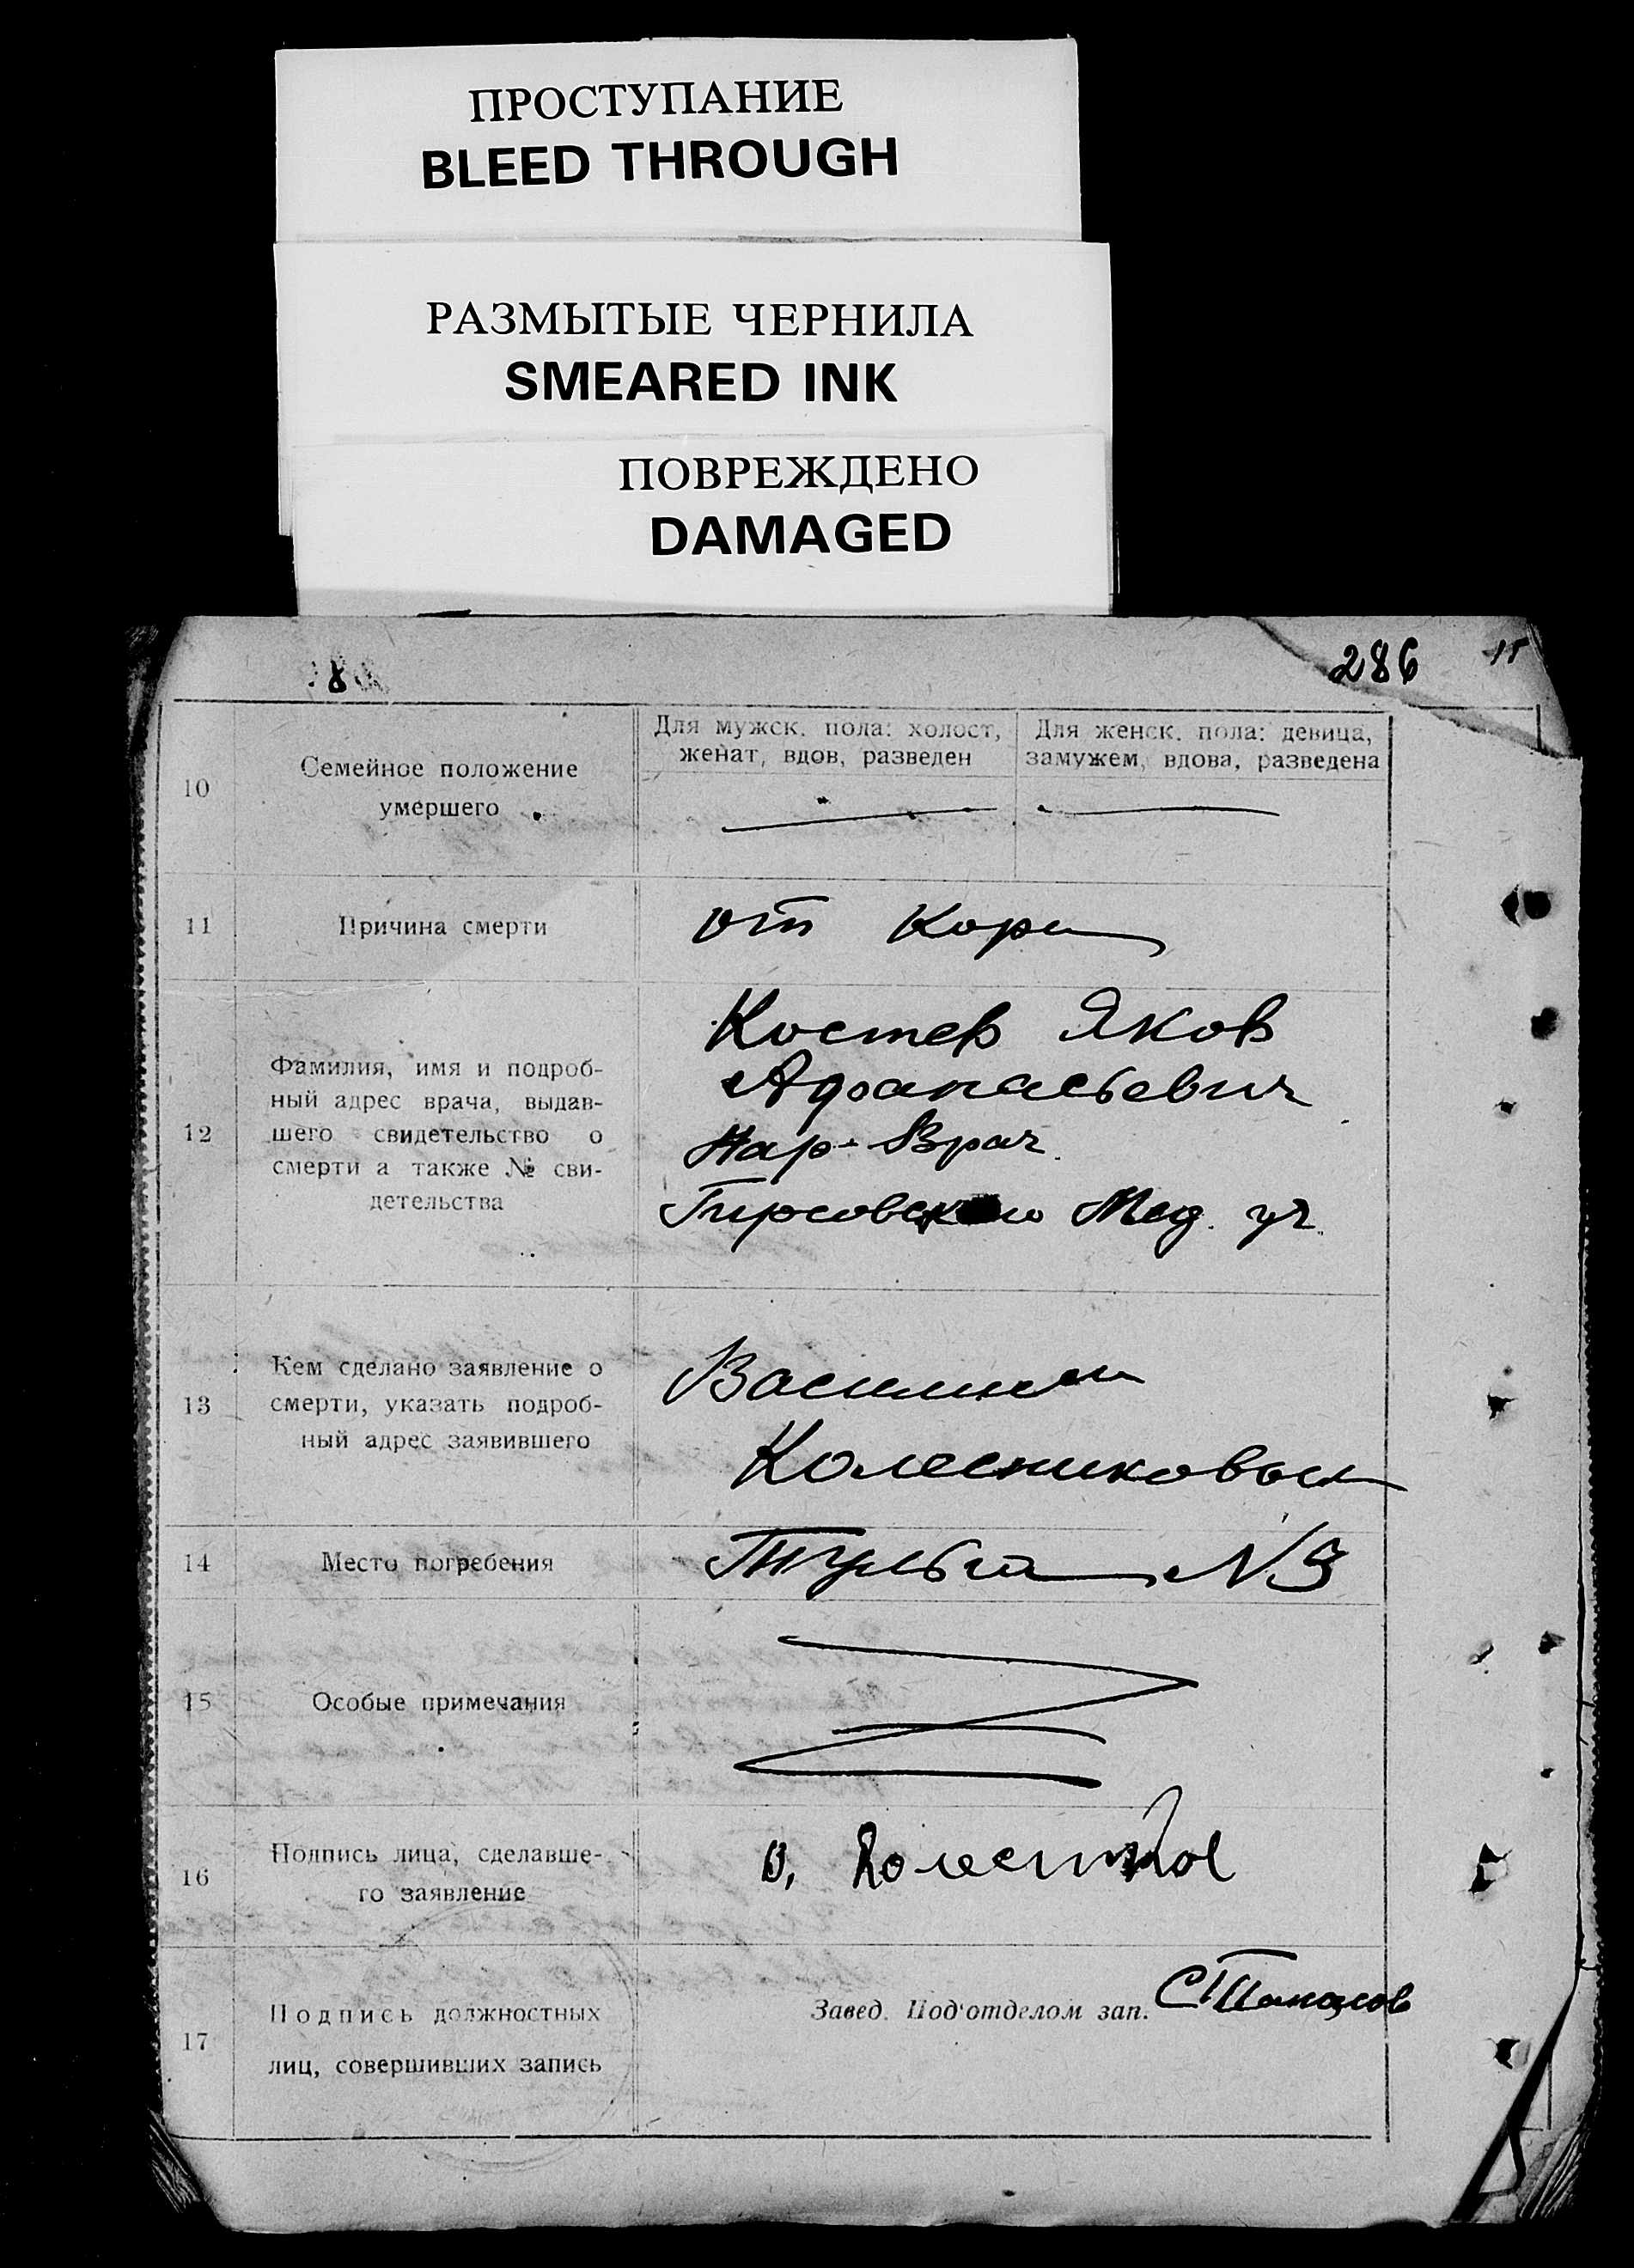 ПРОСТУПАНИЕ
BLEED THROUGH
РАЗМЫТЫЕ ЧЕРНИЛА
SMEARED INK
ПОВРЕЖДЕНО
DAMAGED
8
286
10
Семейное положение
умершего
Для мужск. пола: холост,
женат, вдов, разведен
Для женск. пола: девица,
замужем, вдова, разведена
11
Причина смерти
от Кори
12
Фамилия, имя и подроб-
ный адрес врача, выдав-
шего свидетельство о
смерти а также № сви-
детельства
Костев Яков
Афанасьевич
Нар-Врач.
Мед. уч.
13
Кем сделано заявление о
смерти, указать подроб-
ный адрес заявившего
Василием
Колесниковым
14
Место погребения
Тульга N3
15
Особые примечания
16
Подпись лица, сделавше-
го заявление
В.
17
Подпись должностных
лиц, совершивших запись
Завед. Под'отделом зап.